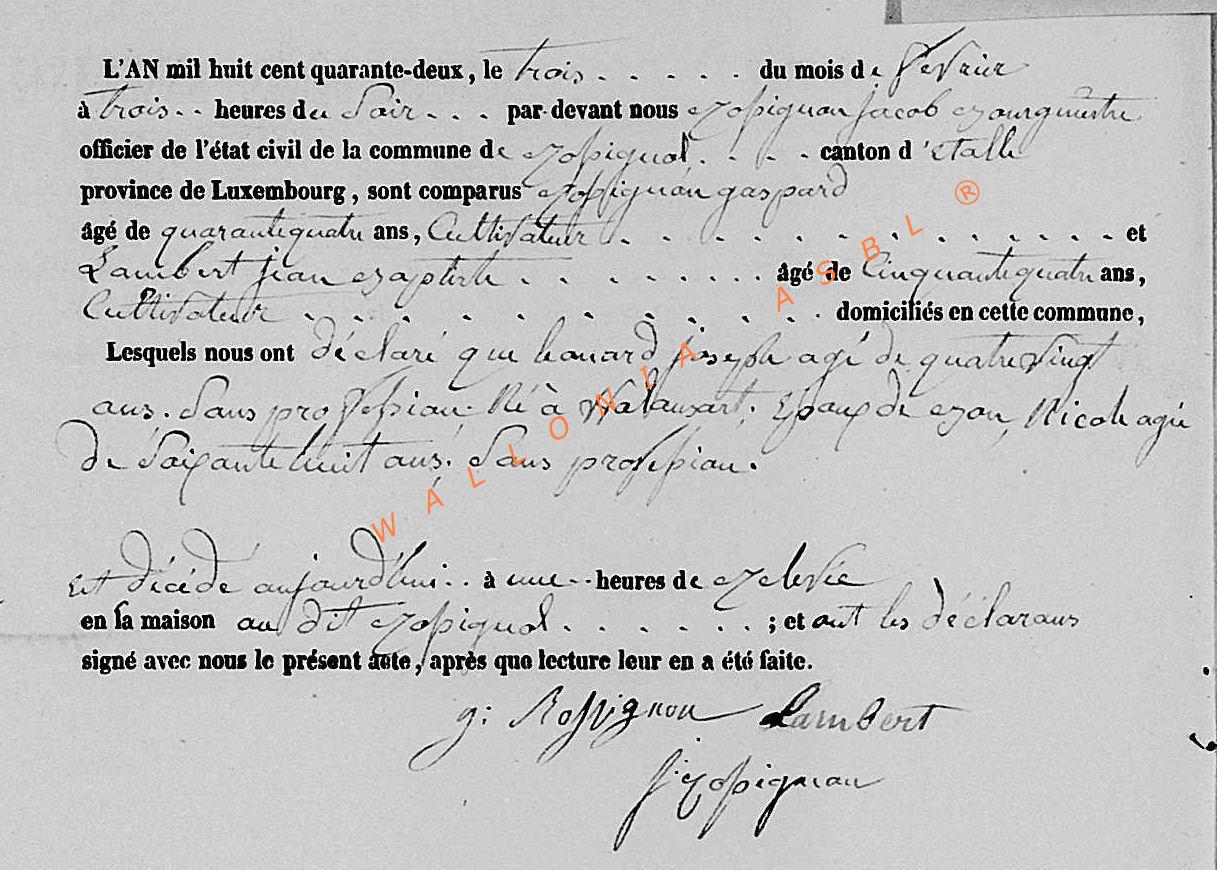 L'AN mil huit cent quarante-deux, le trois . . . . . du mois de fevrier
à trois . . heures du Soir . . . par-devant nous Rossignon jacob Bourguestre
officier de l'état civil de la commune de Rossignol . . . . canton d'étalle
province de Luxembourg, sont comparus Rossignon gaspard
âgé de quarantequatre ans, Cultivateur . . . . . . . . . . . . . . et
Lambert jean Baptiste . . . . . . . âgé de Cinquantequatre ans,
Cultivateur . . . . . . . . . . . domiciliés en cette commune,
Lesquels nous ont déclaré que joseph agé de quatre vingt
ans. Sans profession. Né à . Epoux de Nicole agée
de Soixante huit ans. Sans profession.
Est décédé aujourd'hui . . à une . . heures de Relevée
en sa maison au dit Rossignol . . . . . . ; et ont les déclarans
signé avec nous le présent acte, après que lecture leur en a été faite.
g: Rossignon Lambert
j: Rossignon
WALLONIA ASBL ®